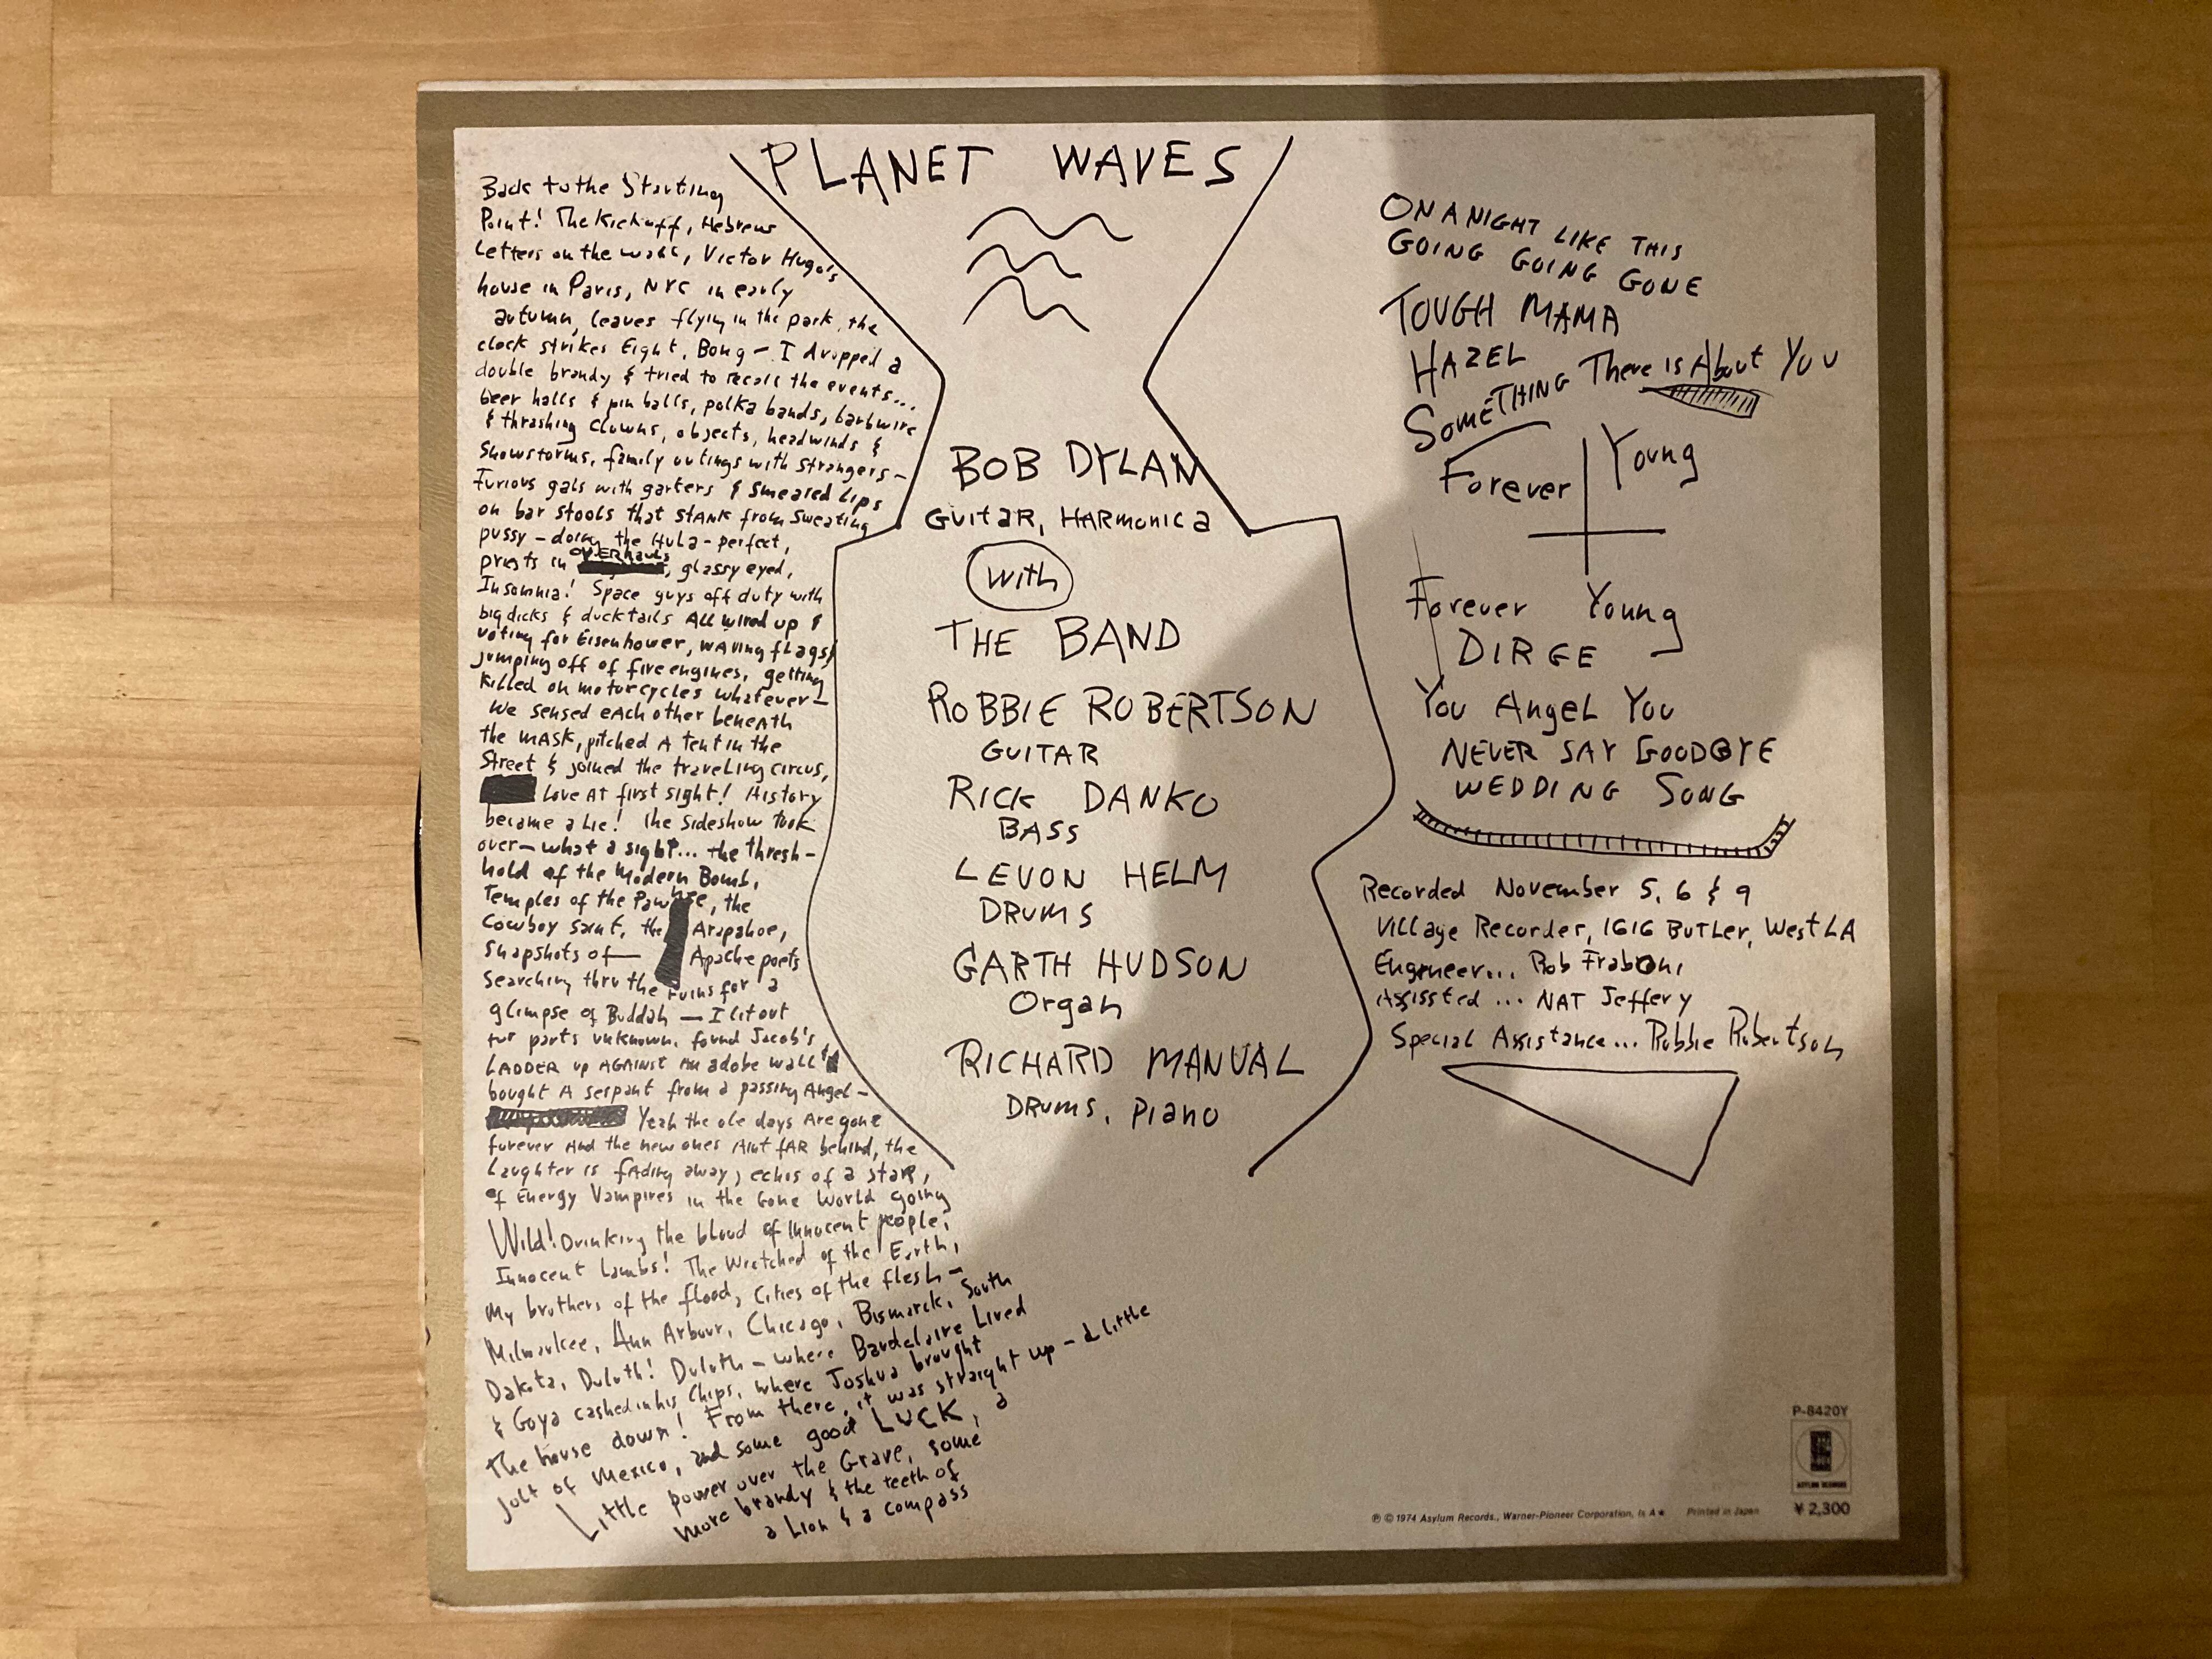 PLANET WAVES
Back to the Starting
Point! The Kickoff, Hebrew
Letters on the wall, Victor Hugo's
house in Paris, NYC in early
autumn, leaves flying in the park, the
clock strikes Eight, Bong — I dropped a
double brandy & tried to recall the events...
beer halls & pin balls, polka bands, barbwire
& thrashing clowns, objects, headwinds &
Snowstorms, family outings with strangers —
Furious gals with garters & smeared Lips
on bar stools that STANK from sweating
pussy — doing the Hula - perfect,
priests in OVERhauls, glassy eyed,
Insomnia! Space guys off duty with
big dicks & ducktails All wired up &
voting for Eisenhower, waving flags &
jumping off of fire engines, getting
killed on motorcycles whatever —
We sensed each other beneath
the MASK, pitched A tent in the
Street & joined the traveling circus,
Love AT first sight! History
became a Lie! The sideshow took
over — what a sight... the thresh-
hold of the Modern Bomb,
Temples of the Pawnee, the
Cowboy saint, the Arapahoe,
snapshots of — Apache poets
searching thru the ruins for a
glimpse of Buddah — I lit out
for parts unknown, found Jacob's
LADDER up AGAINST An adobe wall &
bought A serpant from a passing Angel —
Yeah the ole days Are gone
forever And the new ones Aint fAR behind, the
Laughter is fading away, echos of a star,
of Energy Vampires in the Gone World going
Wild! Drinking the blood of innocent people,
Innocent Lambs! The Wretched of the Earth,
My brothers of the flood, Cities of the flesh —
Milwaukee, Ann Arbour, Chicago, Bismarck, South
Dakota, Duluth! Duluth — where Baudelaire Lived
& Goya cashed in his Chips, where Joshua brought
The house down! From there, it was straight up — a little
jolt of Mexico, and some good LUCK, a
Little power over the Grave, some
more brandy & the teeth of
a Lion & a compass
BOB DYLAN
GUITAR, HARmonica
with
THE BAND
ROBBIE ROBERTSON
GUITAR
RICK DANKO
BASS
LEVON HELM
DRUMS
GARTH HUDSON
Organ
RICHARD MANUAL
DRUMS, PIANO
ON A NIGHT LIKE THIS
GOING GOING GONE
TOUGH MAMA
HAZEL
SOMETHING There is About You
Forever Young
Forever Young
DIRGE
You Angel You
NEVER SAY GOODBYE
WEDDING SONG
Recorded November 5, 6 & 9
Village Recorder, 1616 BUTLER, West LA
Engineer... Rob Fraboni
Assissted ... NAT Jeffery
Special Assistance... Robbie Robertson
P-8420Y
ASYLUM RECORDS
¥2,300
℗ © 1974 Asylum Records., Warner-Pioneer Corporation, Is A★ Printed in Japan